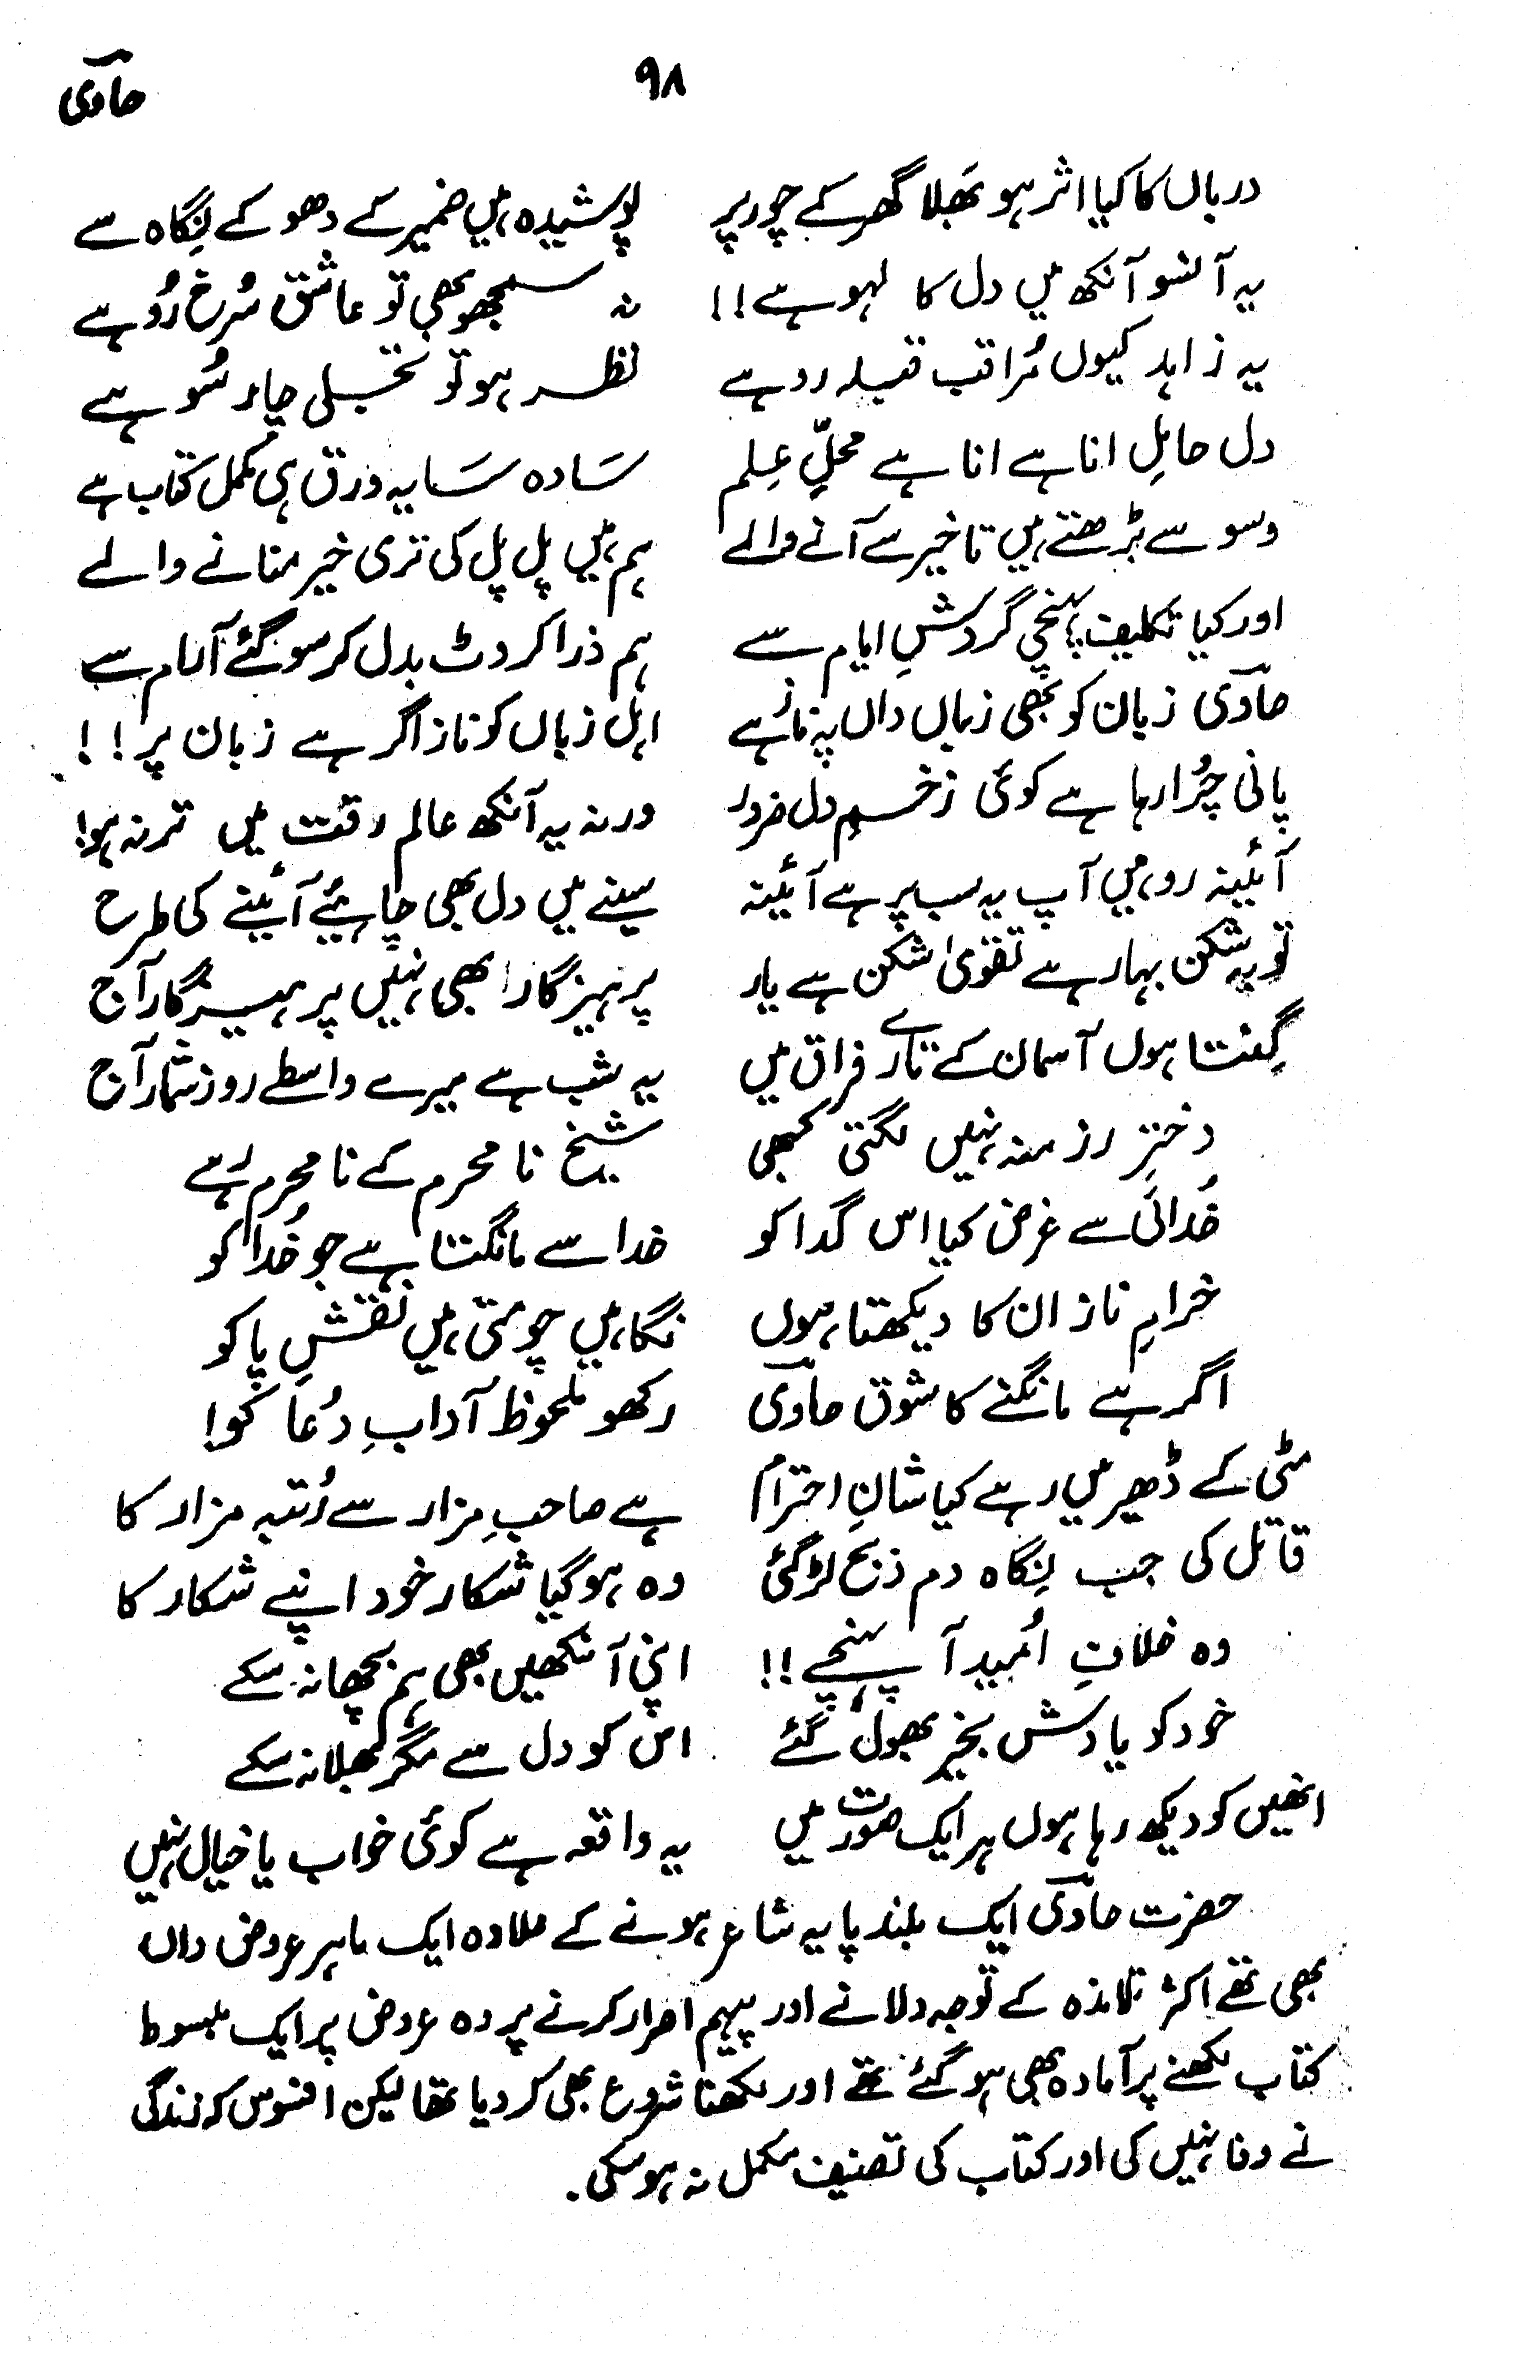 ۹۸
حاوی
درباں کا کیا اثر ہو بھَلا گھر کے چور پر پوشیدہ ہیں ضمیر کے دھوکے نِگاہ سے
یہ آنسو آنکھ میں دل کا لہو ہے!! نہ سمجھو بھی تو عاشق سُرخ رُو ہے
یہ زاہد کیوں مُراقب قبلہ رو ہے نظر ہو تو تجلی چار سُو ہے
دل حاملِ انا ہے انا ہے محلِّ عِلم سَادہ سَا یہ ورق ہی مکمل کتاب ہے
وسوسے بڑھتے ہیں تاخیر سے آنے والے ہم ہیں پل پل کی تری خیر منانے والے
اور کیا تکلیف پہنچی گردشِ ایام سے ہم ذرا کروٹ بدل کر سو گئے آرام سے
حاوی زبان کو بھی زباں داں پہ ناز ہے اہل زباں کو ناز اگر ہے زبان پر!!
پانی چُرا رہا ہے کوئی زخمِ دل ضرور ورنہ یہ آنکھ عالم رقت میں تر نہ ہو!
آئینہ رو ہیں آپ یہ سب پر ہے آئینہ سینے میں دل بھی چاہیئے آئینے کی طرح
توبہ شکن بہار ہے تقویٰ شکن ہے یار پرہیزگار بھی نہیں پرہیزگار آج
گِنتا ہوں آسمان کے تارے فراق میں یہ شب ہے میرے واسطے روز شمار آج
دخترِ رز منہ نہیں لگتی کبھی شیخ نامحرم کے نامحرم رہے
خُدائی سے غرض کیا اس گدا کو خدا سے مانگتا ہے جو خُدا کو
خرامِ ناز ان کا دیکھتا ہوں نگاہیں چومتی ہیں نقشِ پا کو
اگر ہے مانگنے کا شوق حاوی رکھو ملحوظ آدابِ دُعا کو!
مٹی کے ڈھیر میں رہے کیا شانِ احترام ہے صاحبِ مزار سے رُتبہ مزار کا
قاتل کی جب نِگاہ دم ذبح لڑ گئی وہ ہو گیا شکار خود اپنے شکار کا
وہ خلافِ اُمید آ پہنچے!! اپنی آنکھیں بھی ہم بچھا نہ سکے
خود کو یادش بخیر بھول گئے اس کو دل سے مگر بھلا نہ سکے
انھیں کو دیکھ رہا ہوں ہر ایک صورت میں یہ واقعہ ہے کوئی خواب یا خیال نہیں
حضرت حاوی ایک بلند پایہ شاعر ہونے کے علاوہ ایک ماہر عروض داں
بھی تھے اکثر تلامذہ کے توجہ دلانے اور پیہم اصرار کرنے پر وہ عروض پر ایک مبسوط
کتاب لکھنے پر آمادہ بھی ہو گئے تھے اور لکھنا شروع بھی کر دیا تھا لیکن افسوس کہ زندگی
نے وفا نہیں کی اور کتاب کی تصنیف مکمل نہ ہو سکی.